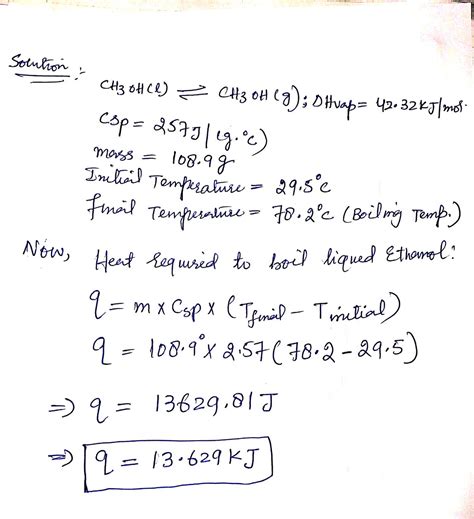 Solution :-
CH3OH(l) ⇌ CH3OH(g); DHvap = 42.32KJ/mol.
Csp = 257J/(g.°c)
mass = 108.9g
Initial Temperature = 29.5°c
final Temperature = 78.2°c (Boiling Temp.)
Now, Heat required to boil liqued Ethanol:
q = m x Csp x (Tfinal - Tinitial)
q = 108.9° x 2.57 (78.2 - 29.5)
⇒ q = 13629.81J
⇒ q = 13.629KJ